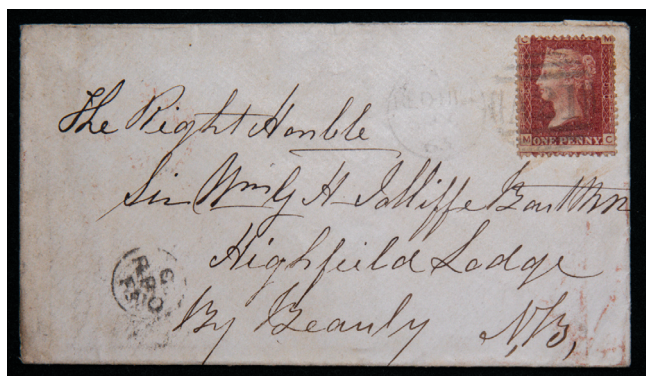 C M
ONE PENNY
M C
The Right Honble
Sir Wm G H Jolliffe Bart
Highfield Lodge
By Beauly N,B,
G